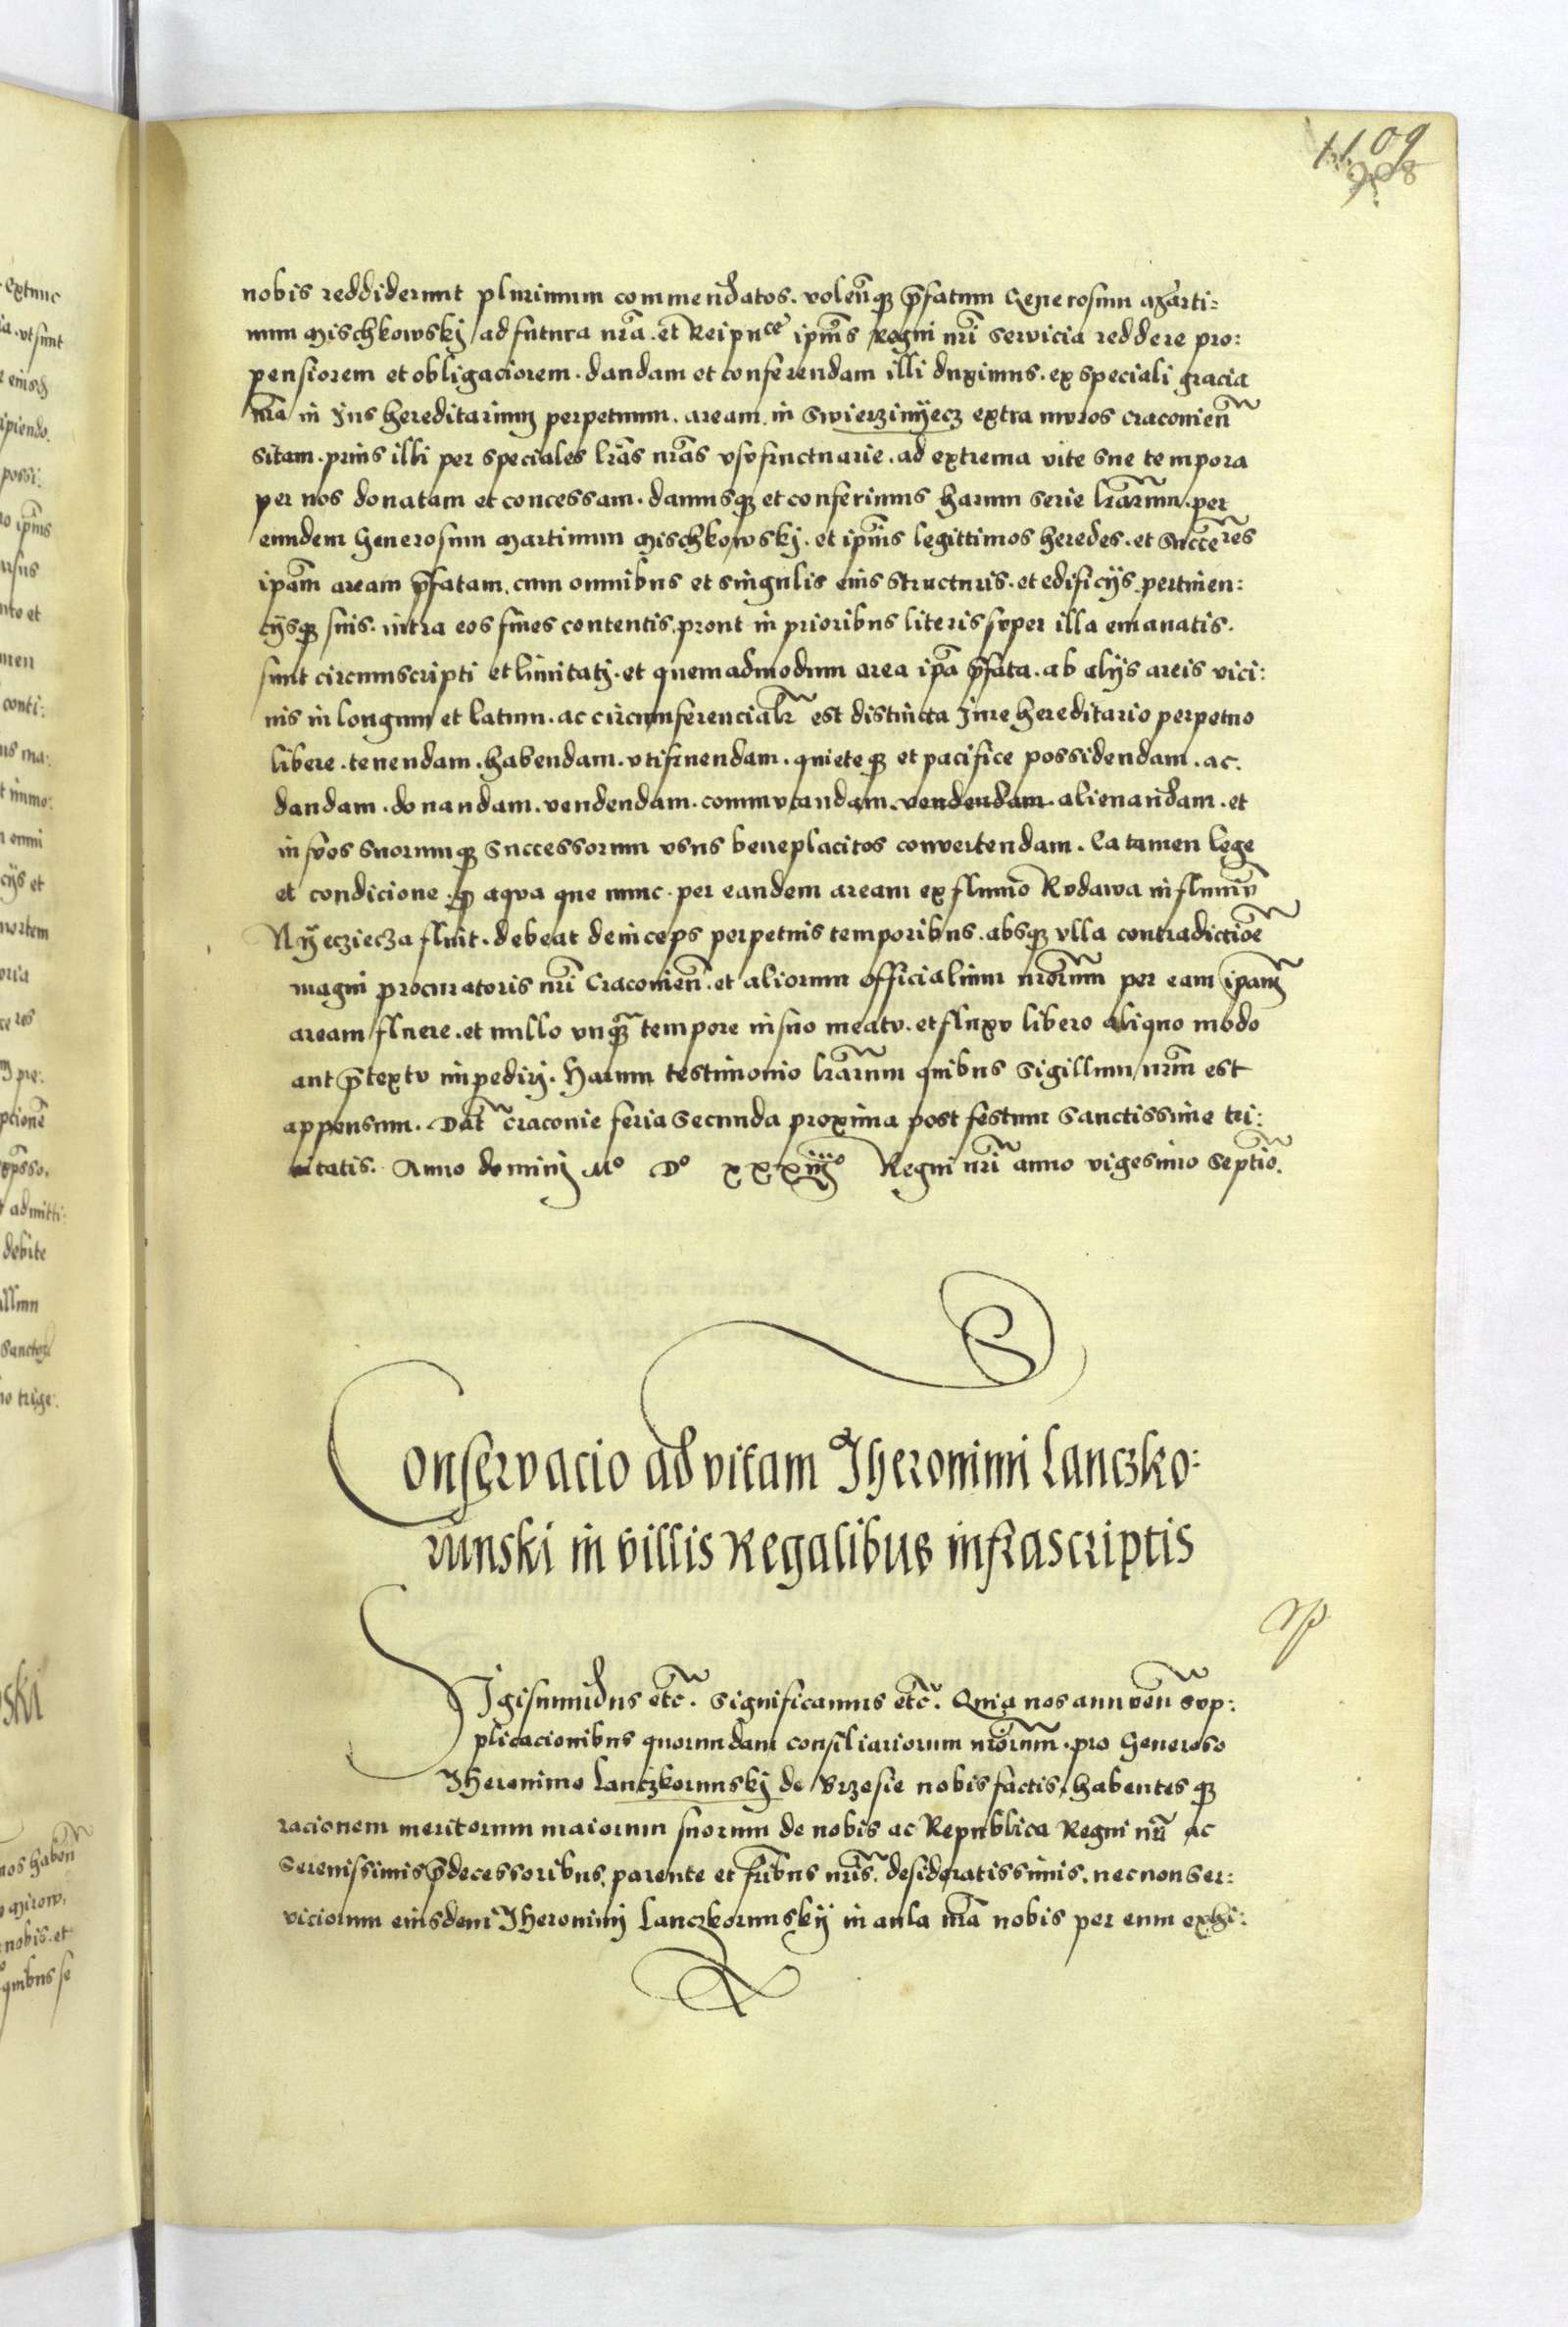 1109
908
nobis reddiderunt plurimum commendatos. volen̄qȝ p̄fatum Generosum Marti:
num Mischkowskj ad futura nr̄a. et Reipuᶜᵉ ip̄ius Regni nr̄i servicia reddere pro:
pensiorem et obligaciorem. dandam et conferendam illi duximus. ex speciali gracia
nr̄a in Jus hereditarium perpetuum. aream. in Swierzinÿecz extra muros Craconien̄
sitam. prius illi per speciales lr̄as nr̄as vsvfructuarie. ad extrema vite sue tempora
per nos donatam et concessam. damusqȝ et conferimus harum serie lr̄arum. per
eundem Generosum Martinum Mischkowskj. et ip̄ius legittimos heredes. et Succeʳēs
ip̄am aream p̄fatam. cum omnibus et singulis eius structuris. et edificijs. pertinen:
cijsqȝ suis. intra eos fines contentis. prout in prioribus literis svper illa emanatis.
sunt circumscripti et limitatj. et quemadmodum area ip̄a p̄fata. ab alijs areis vici:
nis in longum et latum. ac circumferencialr̄ est distincta Jure hereditario perpetuo
libere. tenendam. habendam. vtifruendam. quieteqȝ et pacifice possidendam. ac.
dandam. donandam. vendendam. commvtandam. vendendam. alienandam. et
in svos suorumqȝ successorum vsus beneplacitos convertendam. Ea tamen lege
et condicione. qp aqva que nunc. per eandem aream ex fluuio Rvdawa in fluuiv̄
Nÿecziecza fluit. debeat deinceps perpetuis temporibus. absqȝ vlla contradictiōe
magni procuratoris nr̄i Craconien̄. et aliorum officialium nr̄orum per eam ip̄am
aream fluere. et nullo vnqȝ̄ tempore in suo meatv. et fluxv libero aliquo modo
aut p̄textv impedirj. Harum testimonio lr̄arum quibus Sigillum nr̄m est
appensum. Dat̄ Craconie feria secunda proxima post festum Sanctissime tri:
nitatis. Anno dominj Mº Dº xxxiijº Regni nr̄i anno vigesimo Septīo.
Conservacio ad vitam Jheronimi Lanczko:
runski in villis Regalibus infrascriptis
Sigismundus etc̄. Significamus etc̄. Quia nos annuen̄ svp:
plicacionibus quorundam consiliariorum nr̄orum. pro Generoso
Jheronimo Lanczkorunskj de Brzesie nobis factis. habentesqȝ
racionem meritorum maiorum suorum de nobis ac Republica Regni nr̄i ac
Serenissimis p̄decessoribus. parente et fr̄ibus nr̄is. desideratissimis. necnon ser:
viciorum eiusdem Jheronimj Lanczkorunskÿ in aula nr̄a nobis per eum exhi: